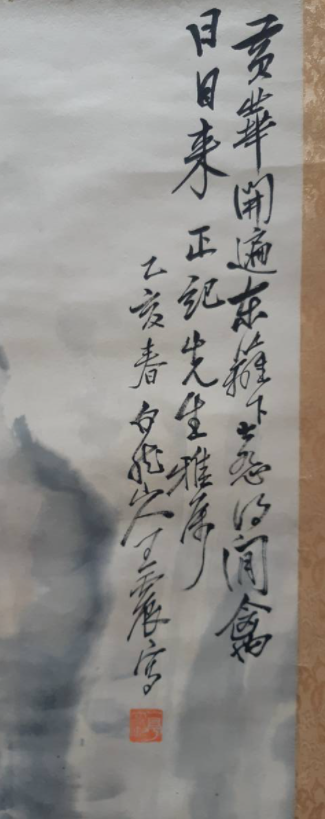 黃華開遍東籬下惹得閒禽
日日来 正記先生雅属
乙亥春 白龍山人王震寫